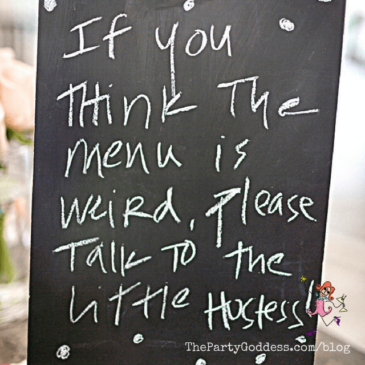 If you
Think The
menu is
weird, Please
Talk To the
Little Hostess!
ThePartyGoddess.com/blog